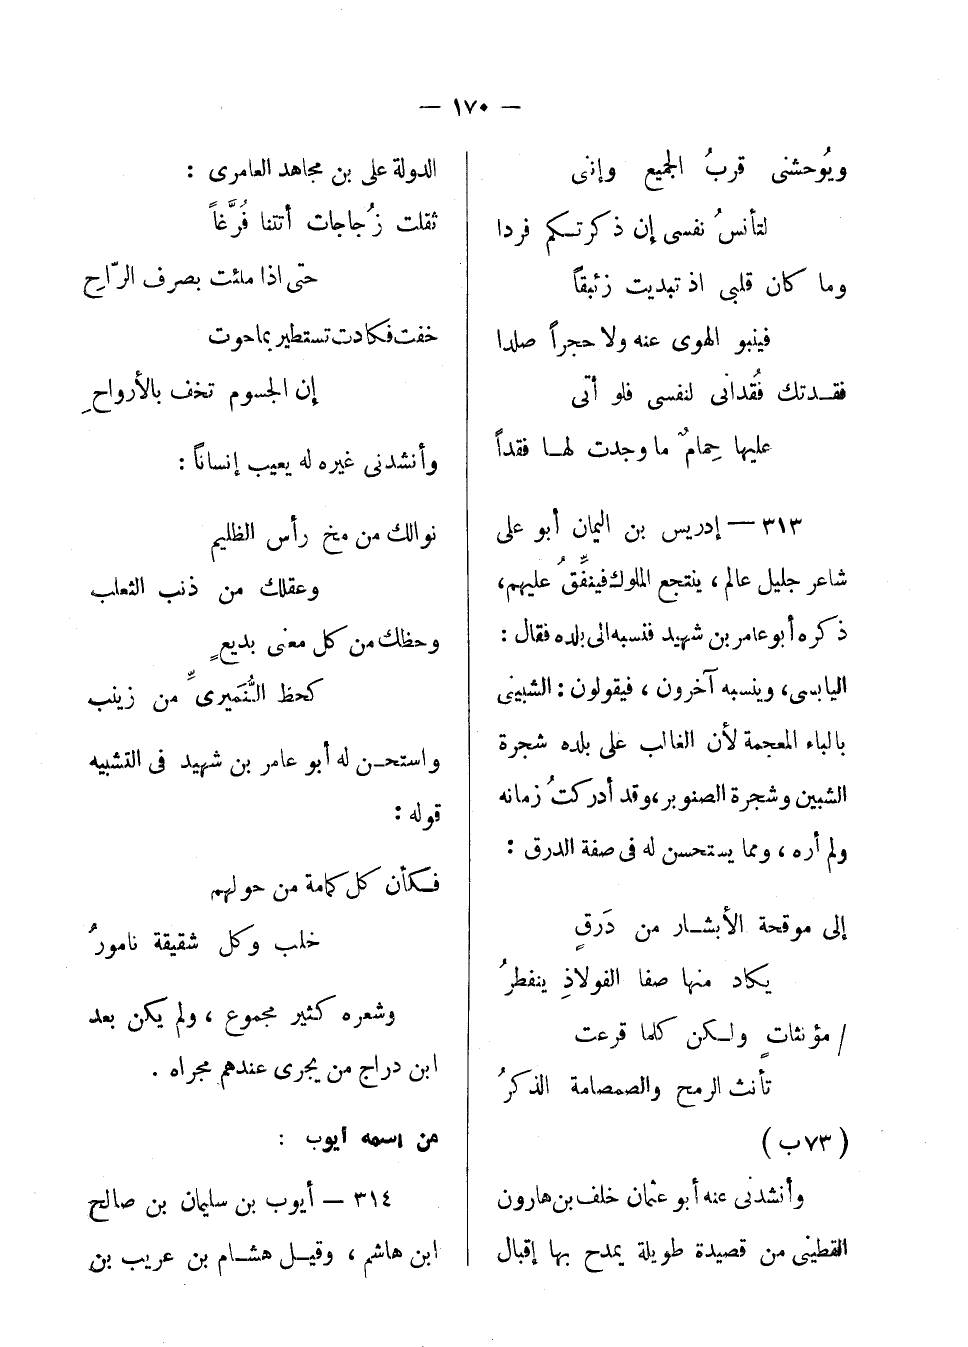 — ١٧٠ —
ويُوحشنى قربُ الجميع وإنى
لتأنسُ نفسى إن ذكرتكم فردا
وما كان قلبى اذ تبديت زئبقاً
فينبو الهوى عنه ولا حجراً صلدا
فقدتك فُقدانى لنفسى فلو أتى
عليها حِمامٌ ما وجدت لها فقداً
٣١٣ — إدريس بن اليمان أبو على
شاعر جليل عالم ، ينتجع الملوك فينفِّقُ عليهم،
ذكره أبو عامر بن شهيد فنسبه الى بلده فقال :
اليابسى، وينسبه آخرون ، فيقولون : الشبينى
بالباء المعجمة لأن الغالب على بلده شجرة
الشبين وشجرة الصنوبر، وقد أدركتُ زمانه
ولم أره ، ومما يستحسن له فى صفة الدرق :
إلى موقحة الأبشار من دَرقٍ
يكاد منها صفا الفولاذِ ينفطرُ
/ مؤنثاتٍ ولكن كلما قرعت
تأنث الرمح والصمصامة الذكرُ
( ٧٣ ب )
وأنشدنى عنه أبو عثمان خلف بن هارون
القطينى من قصيدة طويلة يمدح بها إقبال
الدولة على بن مجاهد العامرى :
ثقلت زُجاجات أتتنا فُرَّغاً
حتى اذا ملئت بصرف الرّاحِ
خفت فكادت تستطير بما حوت
إن الجسوم تخف بالأرواحِ
وأنشدنى غيره له يعيب إنساناً :
نوالك من مخ رأس الظليم
وعقلك من ذنب الثعلب
وحظك من كل معنى بديعٍ
كحظ النُّمَيرىِّ من زينب
واستحسن له أبو عامر بن شهيد فى التشبيه
قوله :
فكأن كل كمامة من حولهم
خلب وكل شقيقة نامورُ
وشعره كثير مجموع ، ولم يكن بعد
ابن دراج من يجرى عندهم مجراه .
من اسمه أيوب :
٣١٤ — أيوب بن سليمان بن صالح
ابن هاشم ، وقيل هشام بن عريب بن